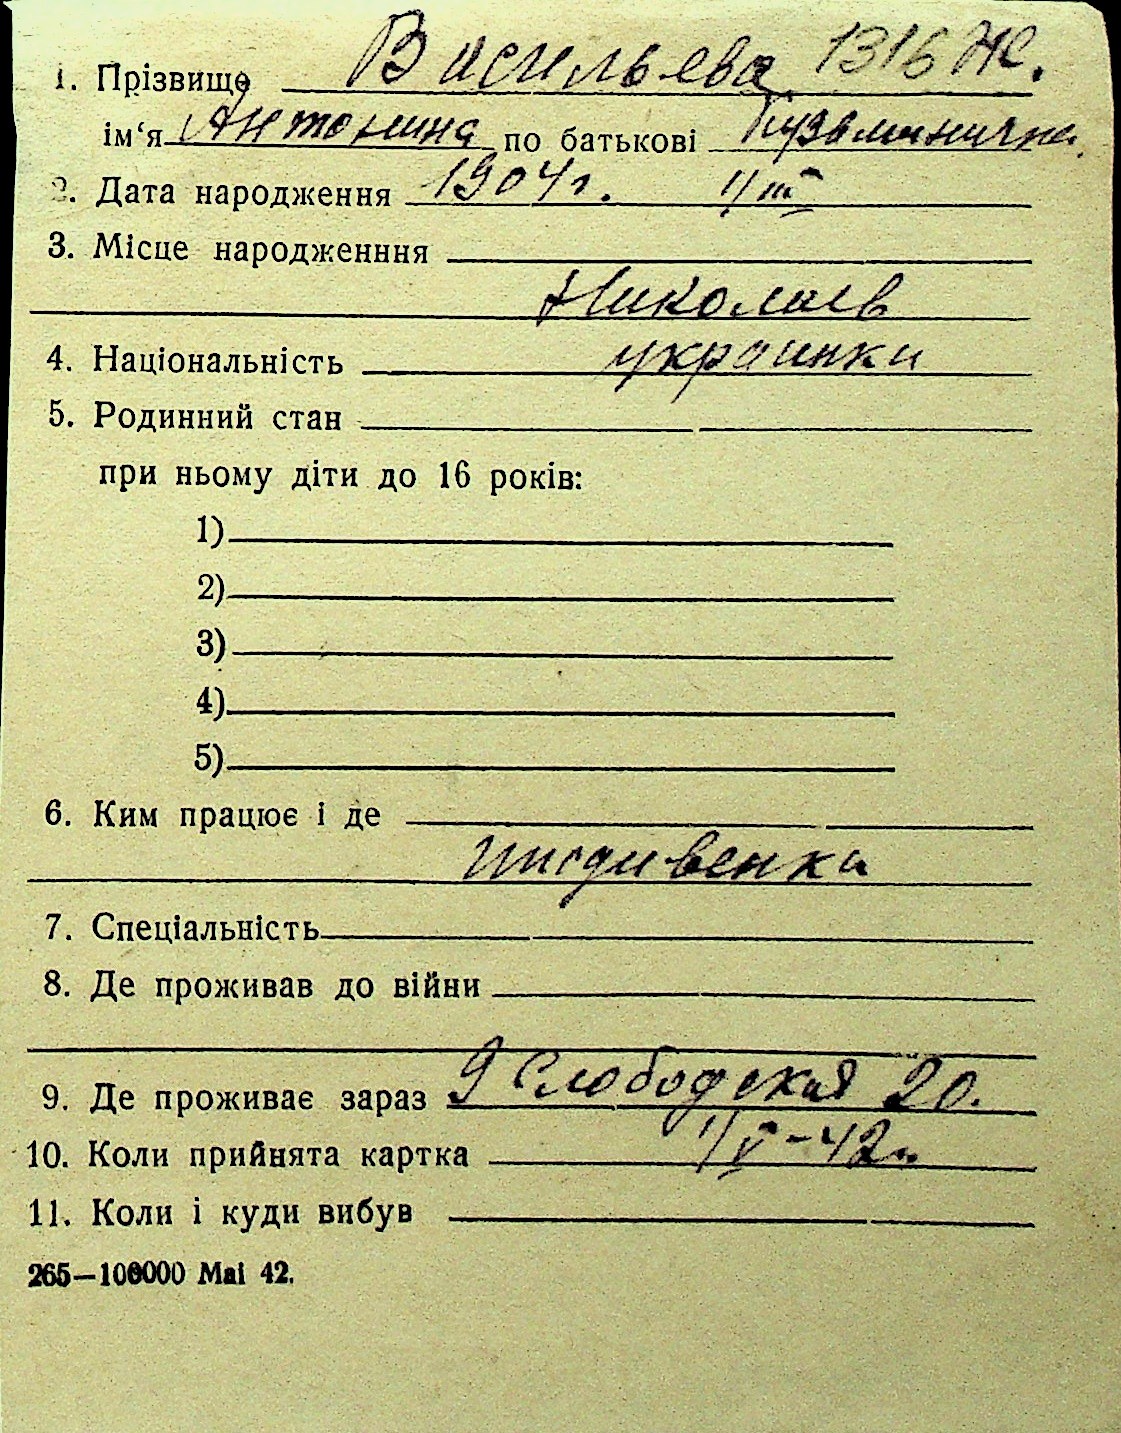 1. Прізвище Васильева 1316 Ж.
ім‘я Антонина по батькові Кузьминична.
2. Дата народження 1904г. 1/III
3. Місце народженння
Николаев
4. Національність украинка
5. Родинний стан
при ньому діти до 16 років:
1)
2)
3)
4)
5)
6. Ким працює і де
иждивенка
7. Спеціальність
8. Де проживав до війни
9. Де проживає зараз 9 Слободская 20.
10. Коли прийнята картка 1/V-42г.
11. Коли і куди вибув
265—100000 Mai 42.